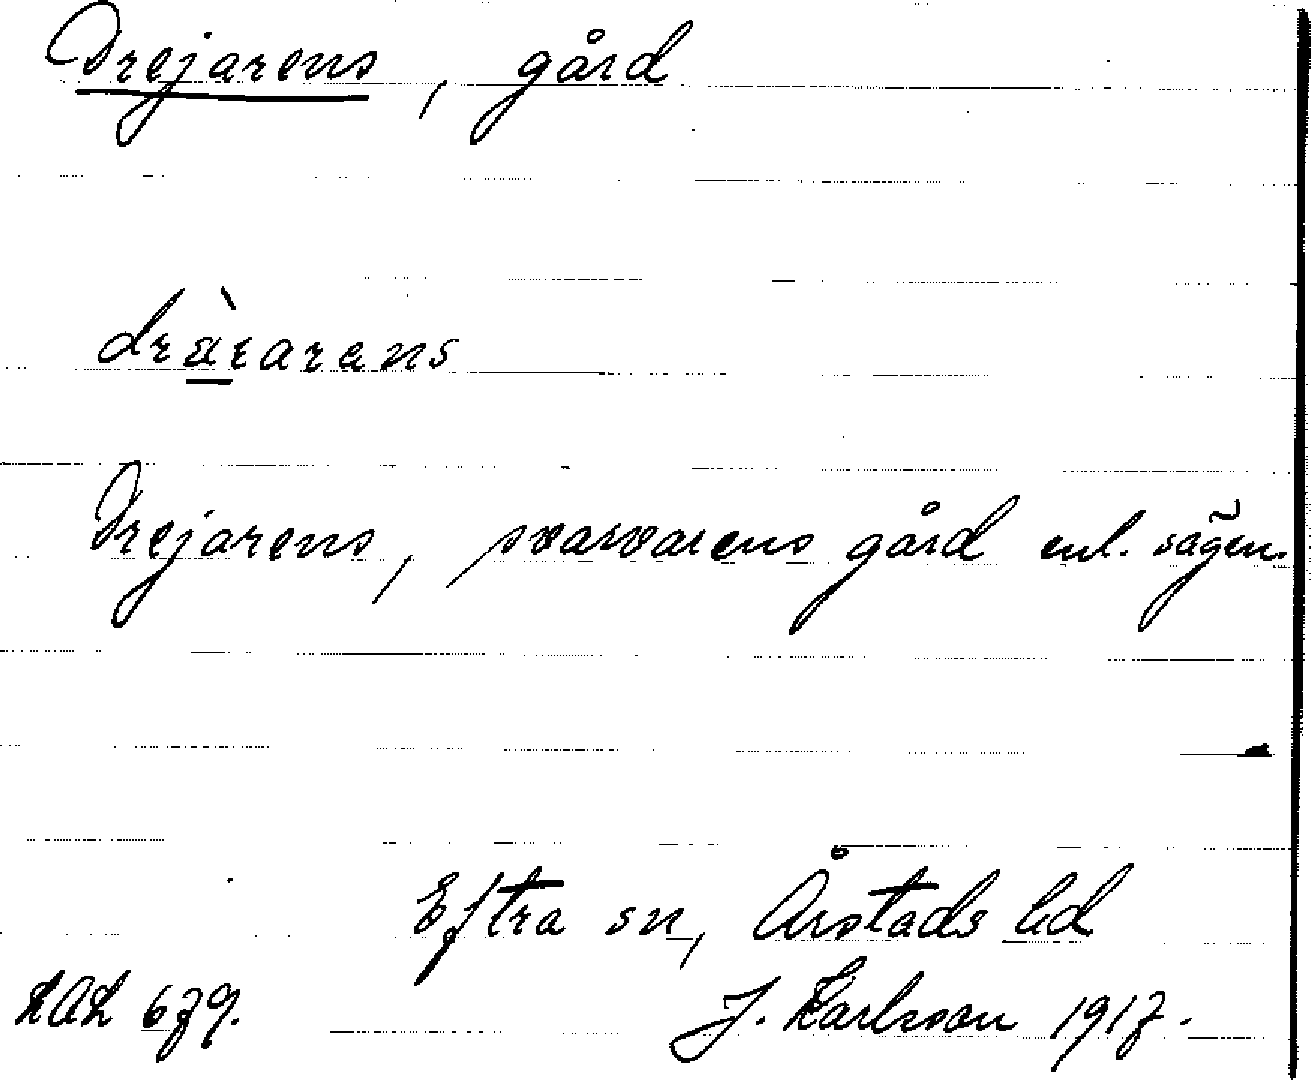 Drejarens, gård
dræ̀ɛarəns
Drejarens, svarvarens gård enl. sägen.
Eftra sn, Årstads hd
LAL 679.
J. Karlsson 1917.